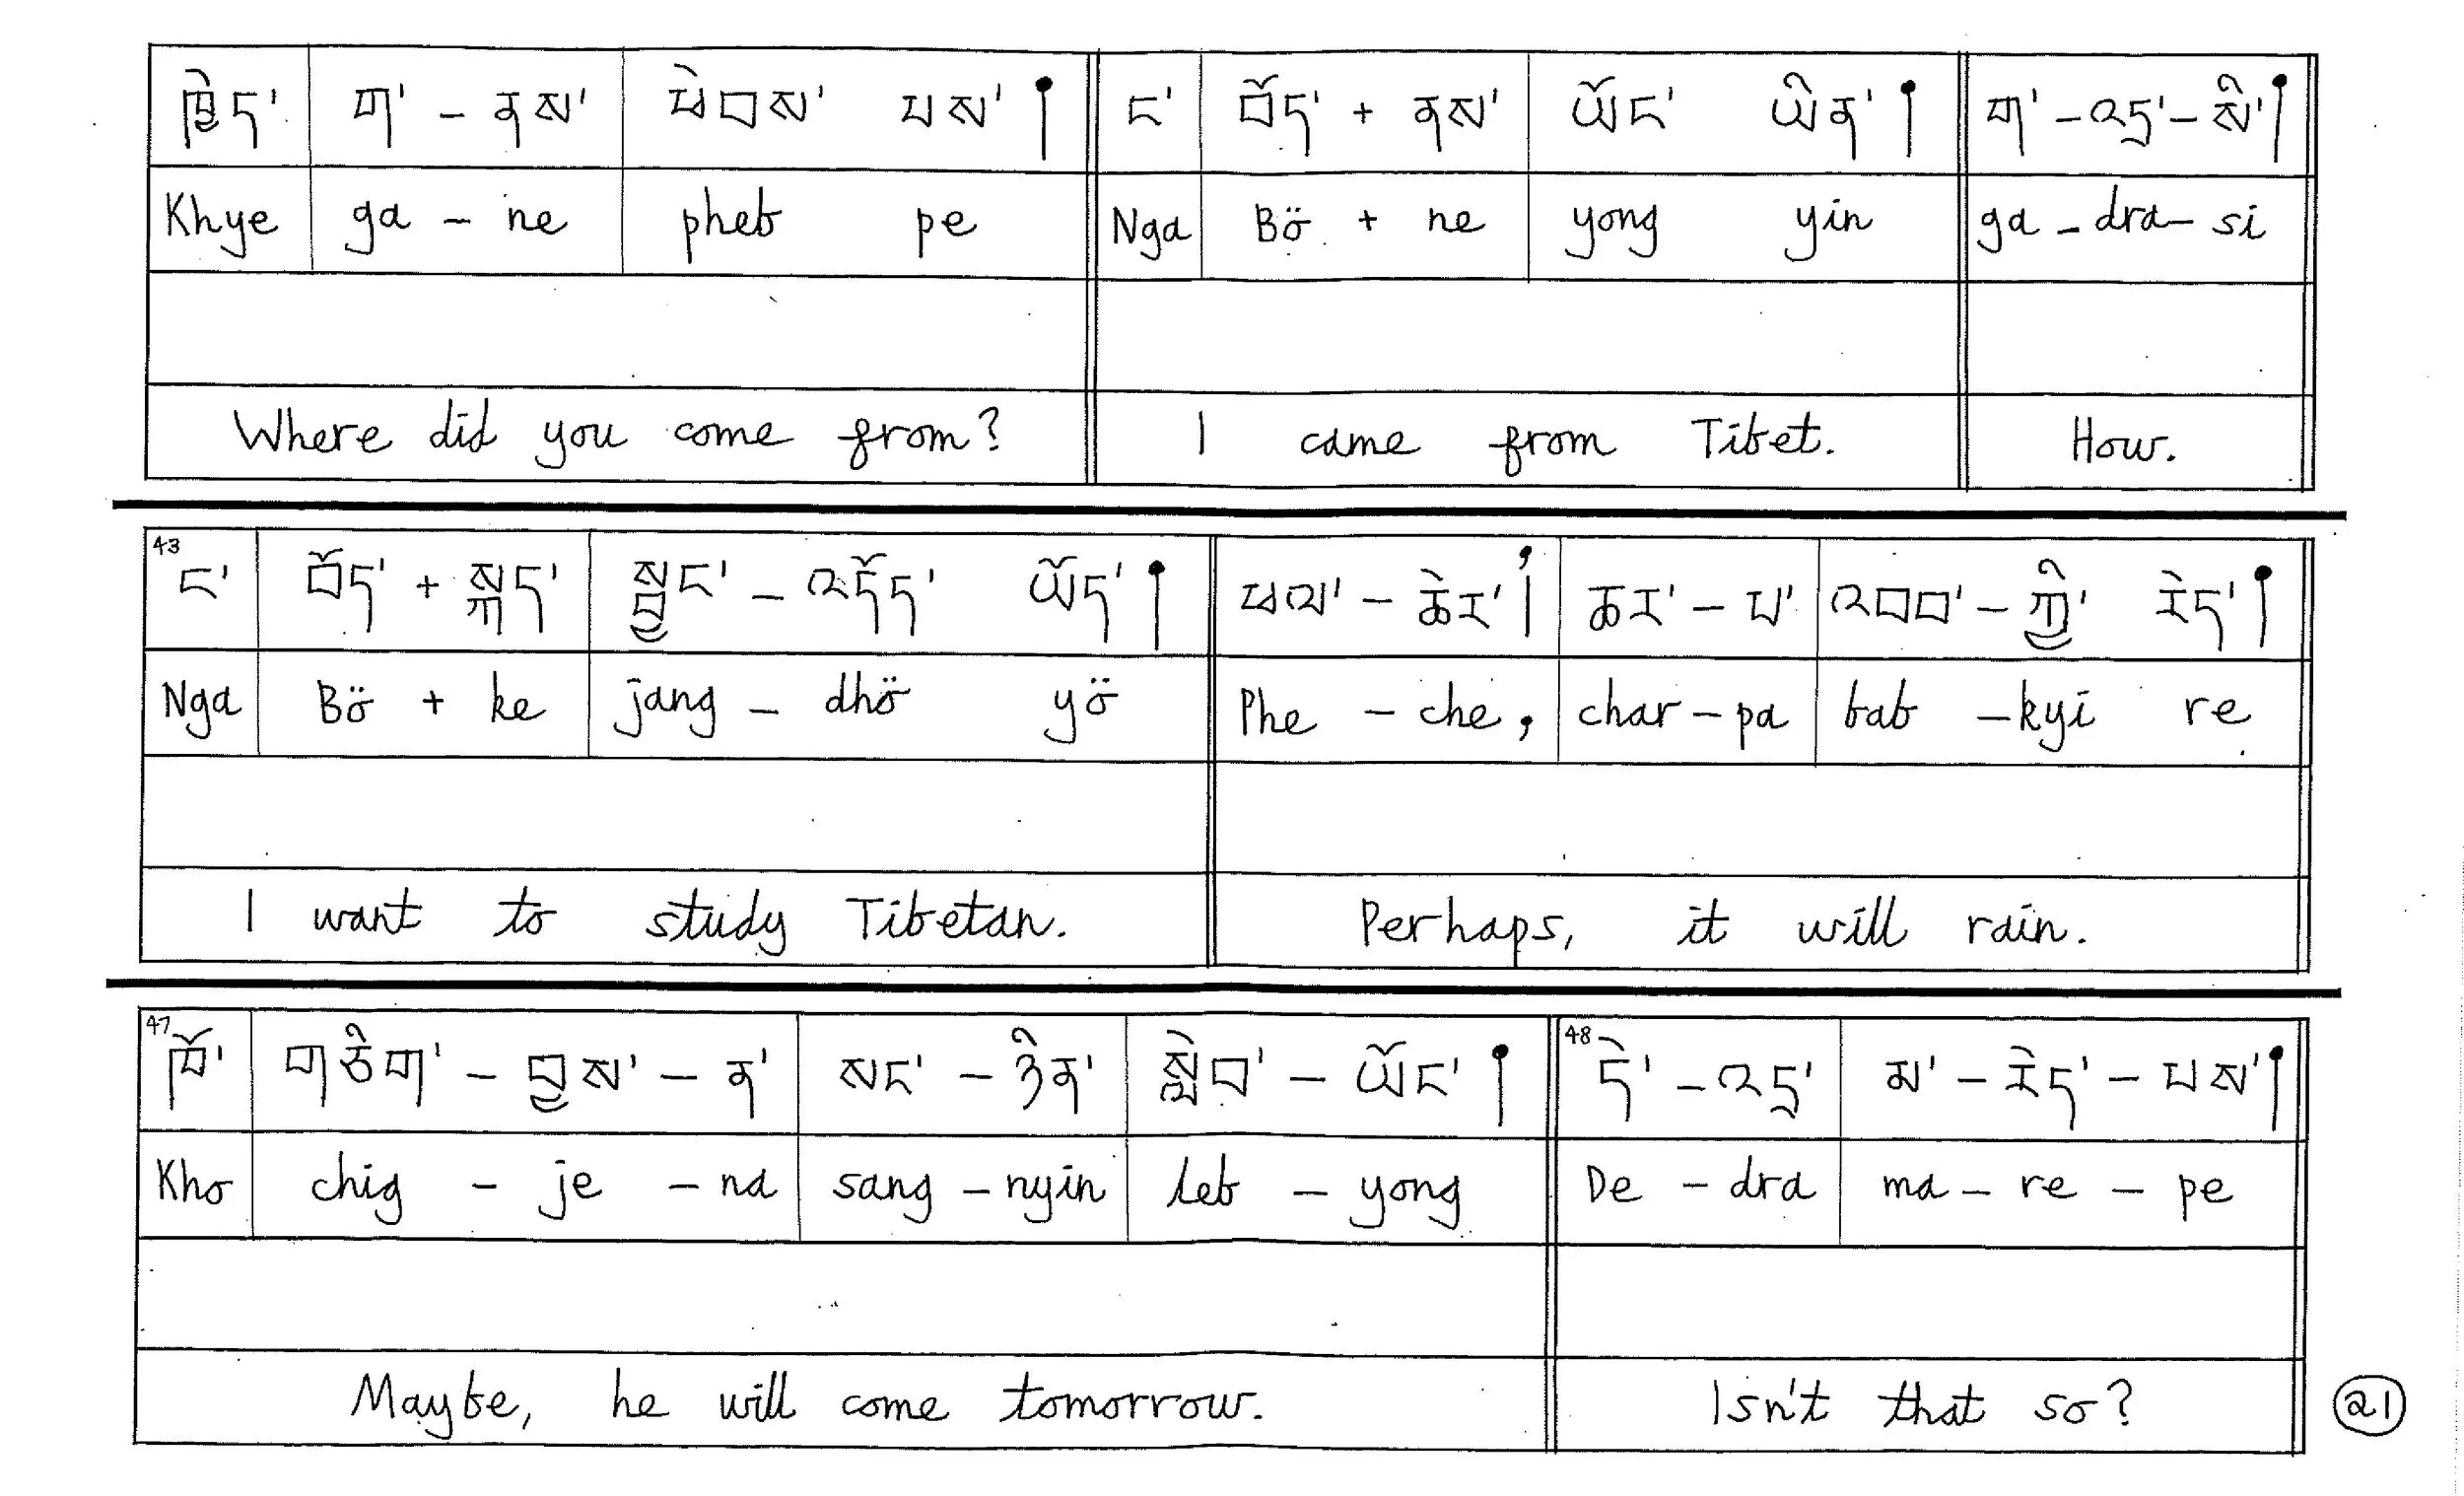 ཁྱེད་ ག་ - ནས་ ཕེབས་ པས། ང་ བོད་ + ནས་ ཡོང་ ཡིན། ག་ - འདྲ་ - སི།
Khye ga - ne pheb pe Nga Bö + ne yong yin ga - dra - si
Where did you come from? I came from Tibet. How.
43 ང་ བོད་ + སྐད་ སྦྱང་ - འདོད་ ཡོད། ཕལ་ - ཆེར། ཆར་ - པ་ འབབ་ - ཀྱི་ རེད།
Nga Bö + ke jang - dhö yö Phe - che, char - pa bab - kyi re
I want to study Tibetan. Perhaps, it will rain.
47 ཁོ་ གཅིག་ - བྱས་ - ན་ སང་ - ཉིན་ སླེབ་ - ཡོང་། 48 དེ་ - འདྲ་ མ་ - རེད་ - པས།
Kho chig - je - na sang - nyin leb - yong De - dra ma - re - pe
Maybe, he will come tomorrow. Isn't that so?
21